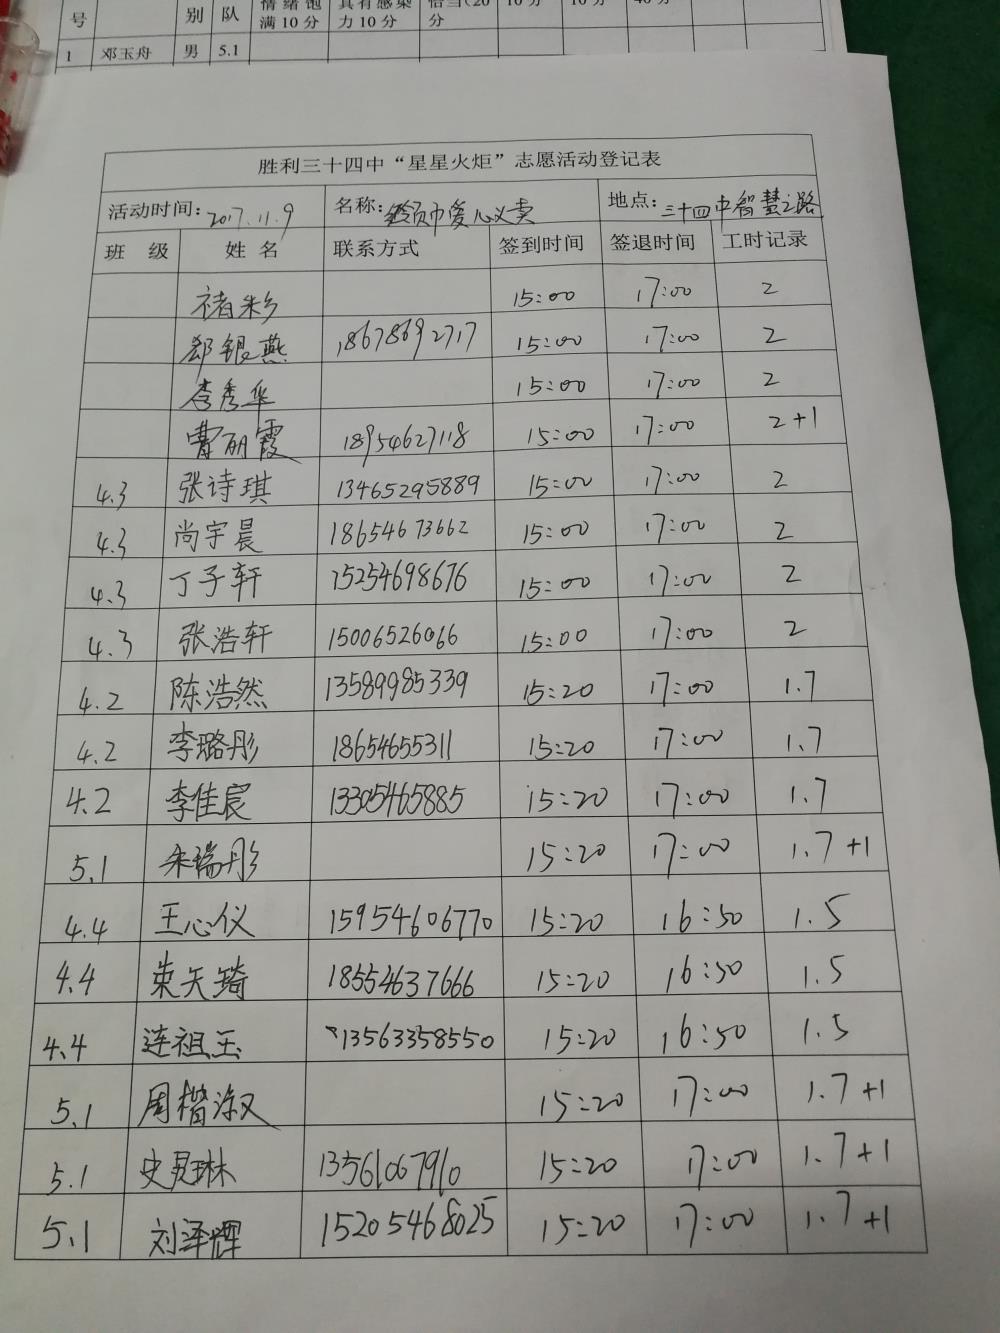 号 别 队 情绪饱满10分 具有感染力10分 恰当(20分 10分 10分
1 邓玉舟 男 5.1
胜利三十四中“星星火炬”志愿活动登记表
活动时间：2017.11.9 名称：爱心义卖 地点：三十四中智慧之路
班 级 姓 名 联系方式 签到时间 签退时间 工时记录
褚彩 15:00 17:00 2
郄银燕 18678692717 15:00 17:00 2
李秀华 15:00 17:00 2
曹丽霞 18954627118 15:00 17:00 2+1
4.3 张诗琪 13465295889 15:00 17:00 2
4.3 尚宇晨 18654673662 15:00 17:00 2
4.3 丁子轩 15254698676 15:00 17:00 2
4.3 张浩轩 15006526066 15:00 17:00 2
4.2 陈浩然 13589985339 15:20 17:00 1.7
4.2 李璐彤 18654655311 15:20 17:00 1.7
4.2 李佳宸 13305465885 15:20 17:00 1.7
5.1 朱瑞彤 15:20 17:00 1.7+1
4.4 王心仪 15954606770 15:20 16:50 1.5
4.4 束天琦 18554637666 15:20 16:50 1.5
4.4 连祖玉 13563358550 15:20 16:50 1.5
5.1 周楷淑 15:20 17:00 1.7+1
5.1 史琳 13561067910 15:20 17:00 1.7+1
5.1 刘泽辉 15205468025 15:20 17:00 1.7+1